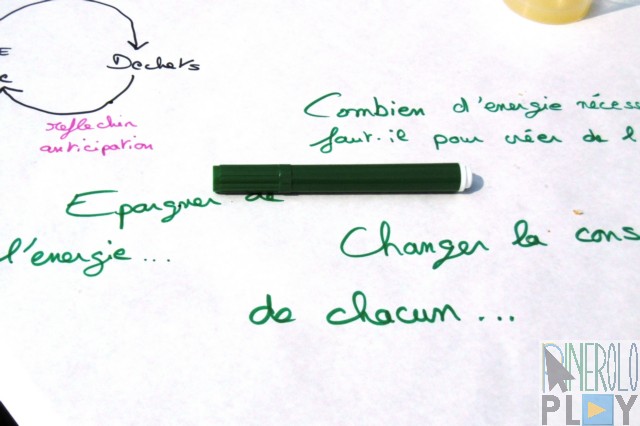 Dechets
reflechir
anticipation
Combien d'energie nécess
faut-il pour créer de l
Epargner de
l'énergie...
Changer la cons
de chacun...
PINEROLO
PLAY